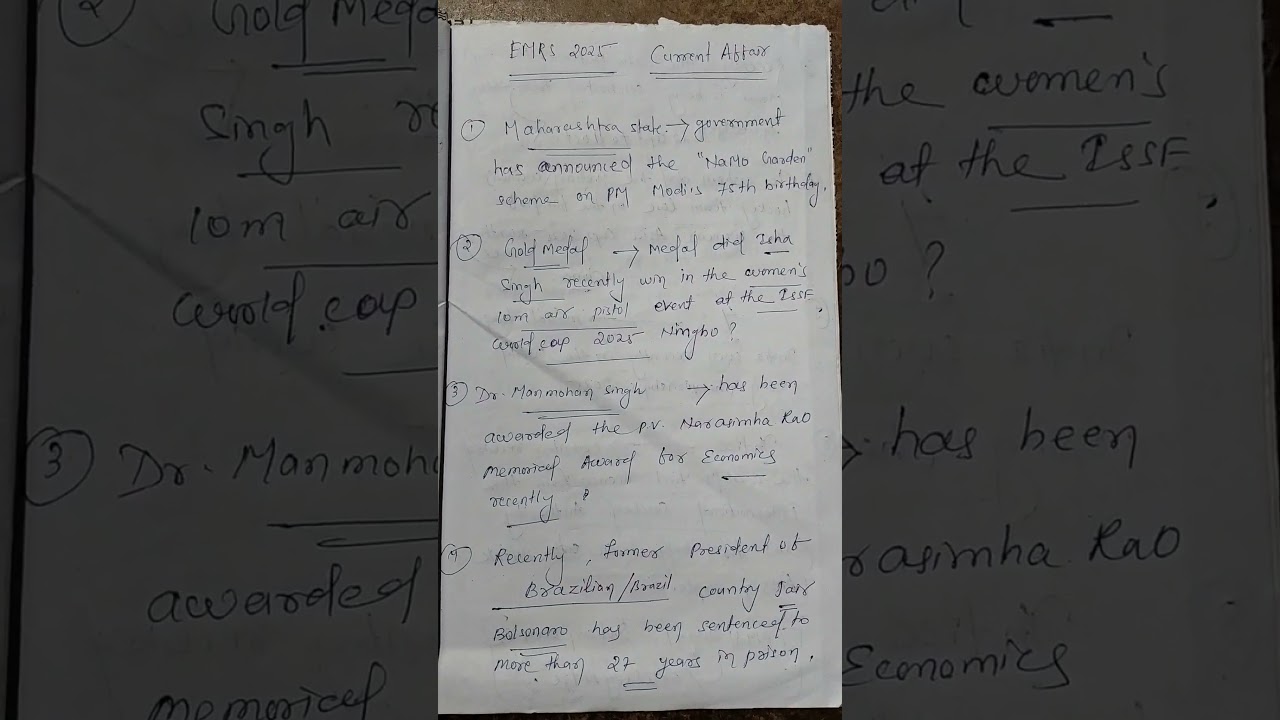 EMRS 2025 Current Affair
① Maharashtra state → government
has announced the "NaMo Garden"
scheme on PM Modi's 75th birthday.
② Gold Medal → Medal did Isha
Singh recently win in the women's
10m air pistol event at the ISSF
world cap 2025 Ningbo?
③ Dr. Manmohan Singh → has been
awarded the P.V. Narasimha Rao
Memorical Award for Economics
recently.?
④ Recently, former President of
Brazilian/Brazil country Jair
Bolsonaro has been sentenced to
more than 27 years in prison.